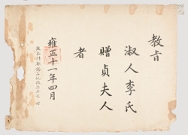 教旨
淑人李氏
贈貞夫人
者
雍正十一年四月